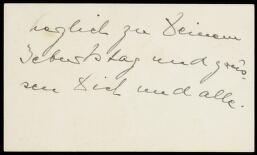 herzlich zu Deinem
Geburtstag und grüs-
sen Dich und alle.